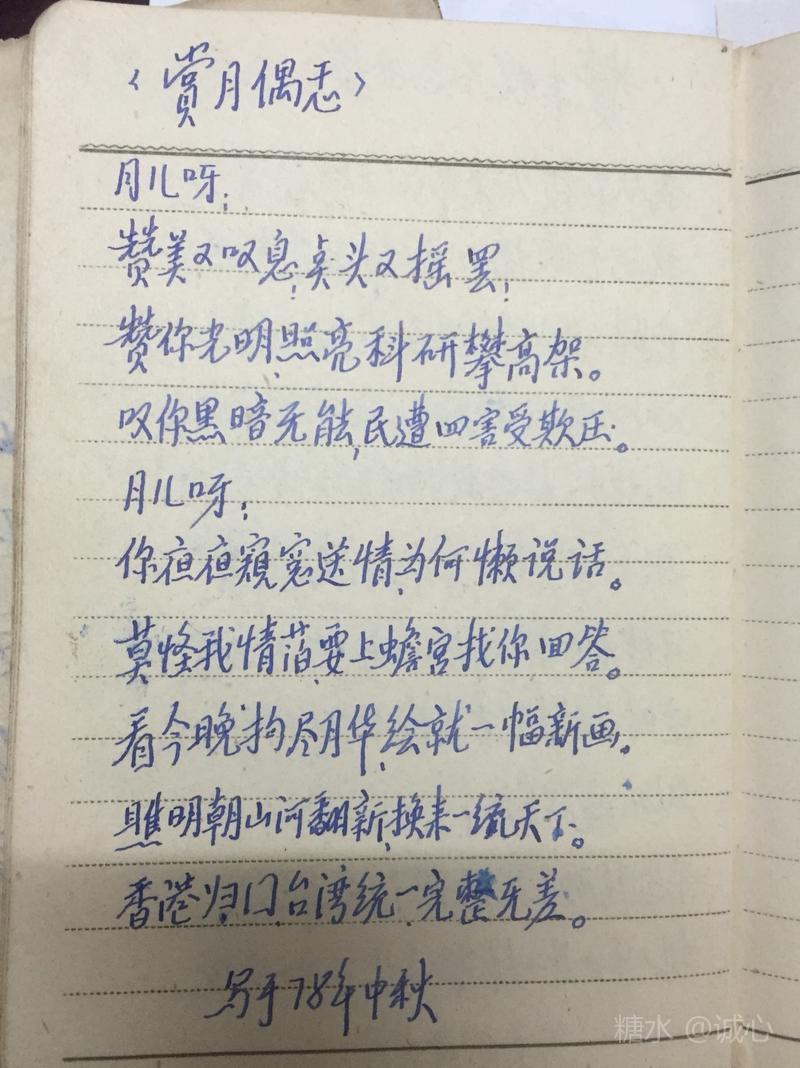 《赏月偶忑》
月儿呀；
赞美又叹息，点头又摇罢；
赞你光明，照亮科研攀高架。
叹你黑暗无能，民遭四害受欺压。
月儿呀；
你夜夜窥窗送情，为何懒说话。
莫怪我情茖，要上蟾宫找你回答。
看今晚掬尽月华，绘就一幅新画。
瞧明朝山河翻新，换来一统天下。
香港归门，台湾统一，完整无差。
写于78年中秋
糖水 @诚心